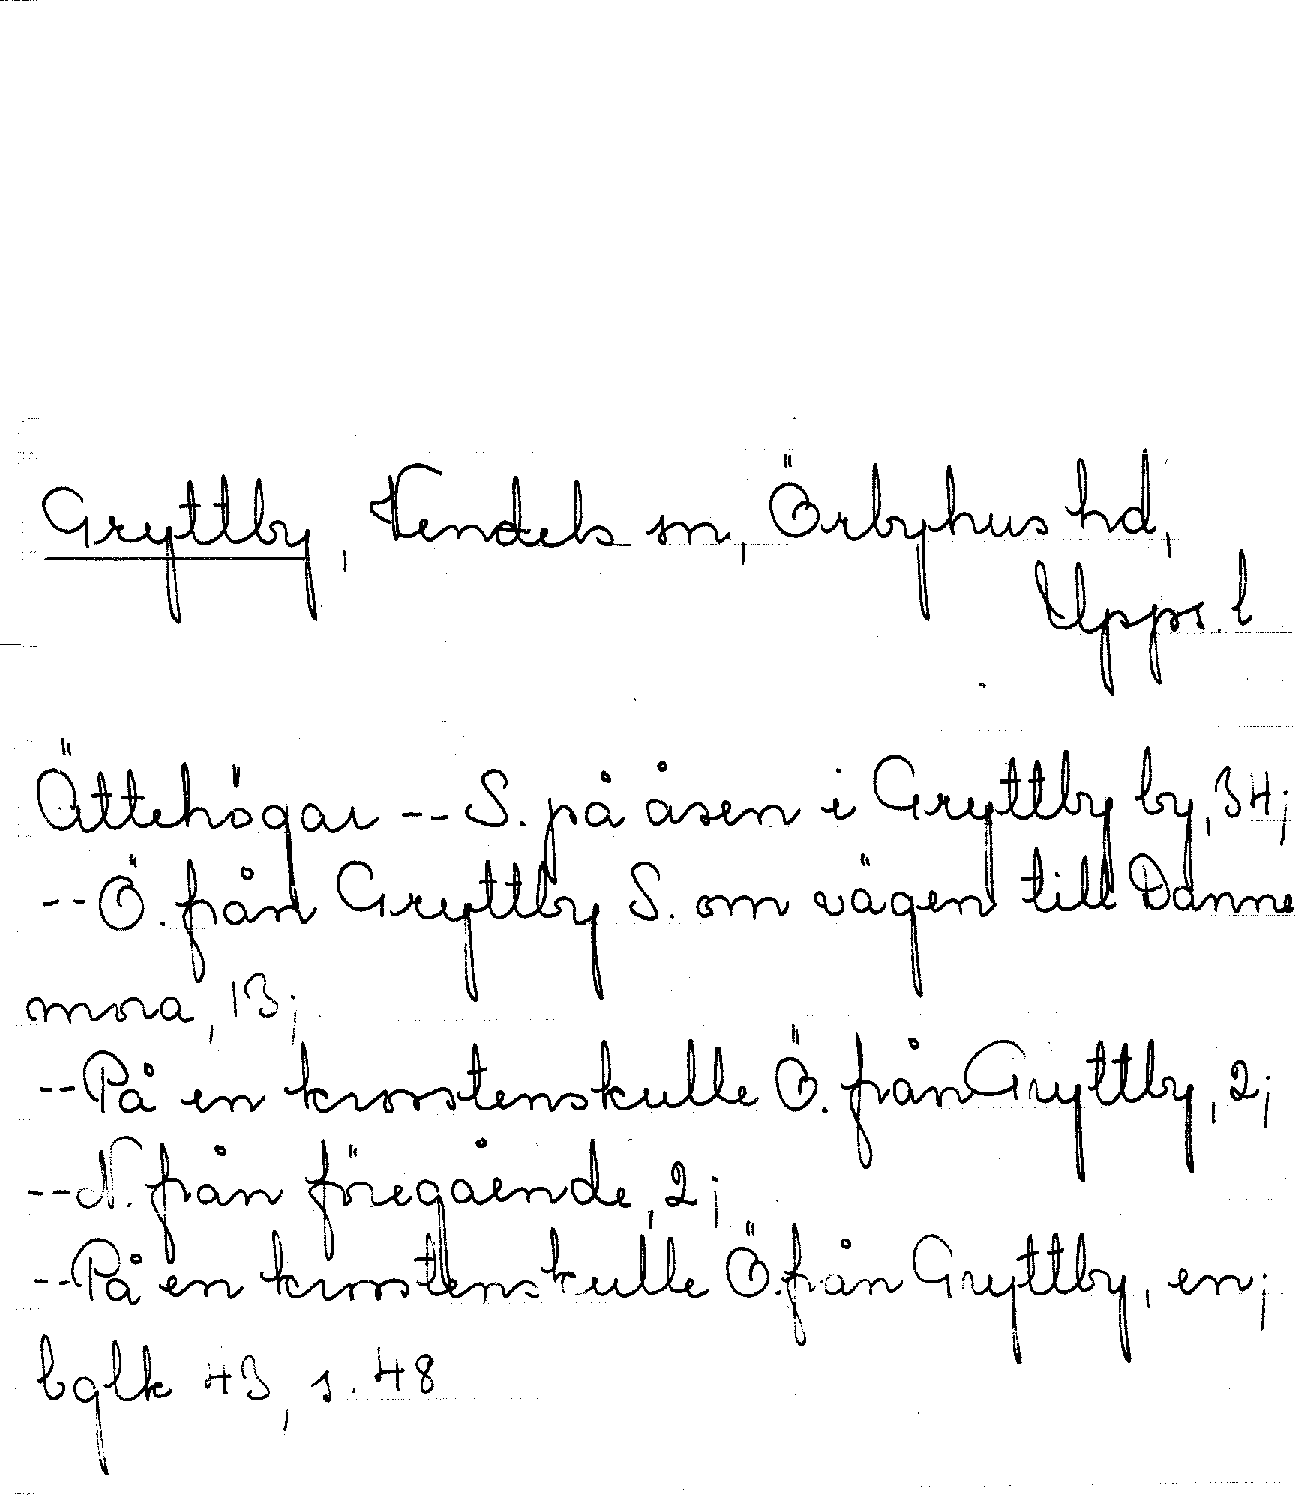 Gryttby, Vendels sn, Örbyhus hd,
Upps. l
Ättehögar -- S. på åsen i Gryttby by, 34;
-- Ö. från Gryttby S. om vägen till Danne
mora, 13;
-- På en krosstenskulle Ö. från Gryttby, 2;
-- N. från föregående, 2;
-- På en krosstenskulle Ö. från Gryttby, en;
bglk 43, s. 48